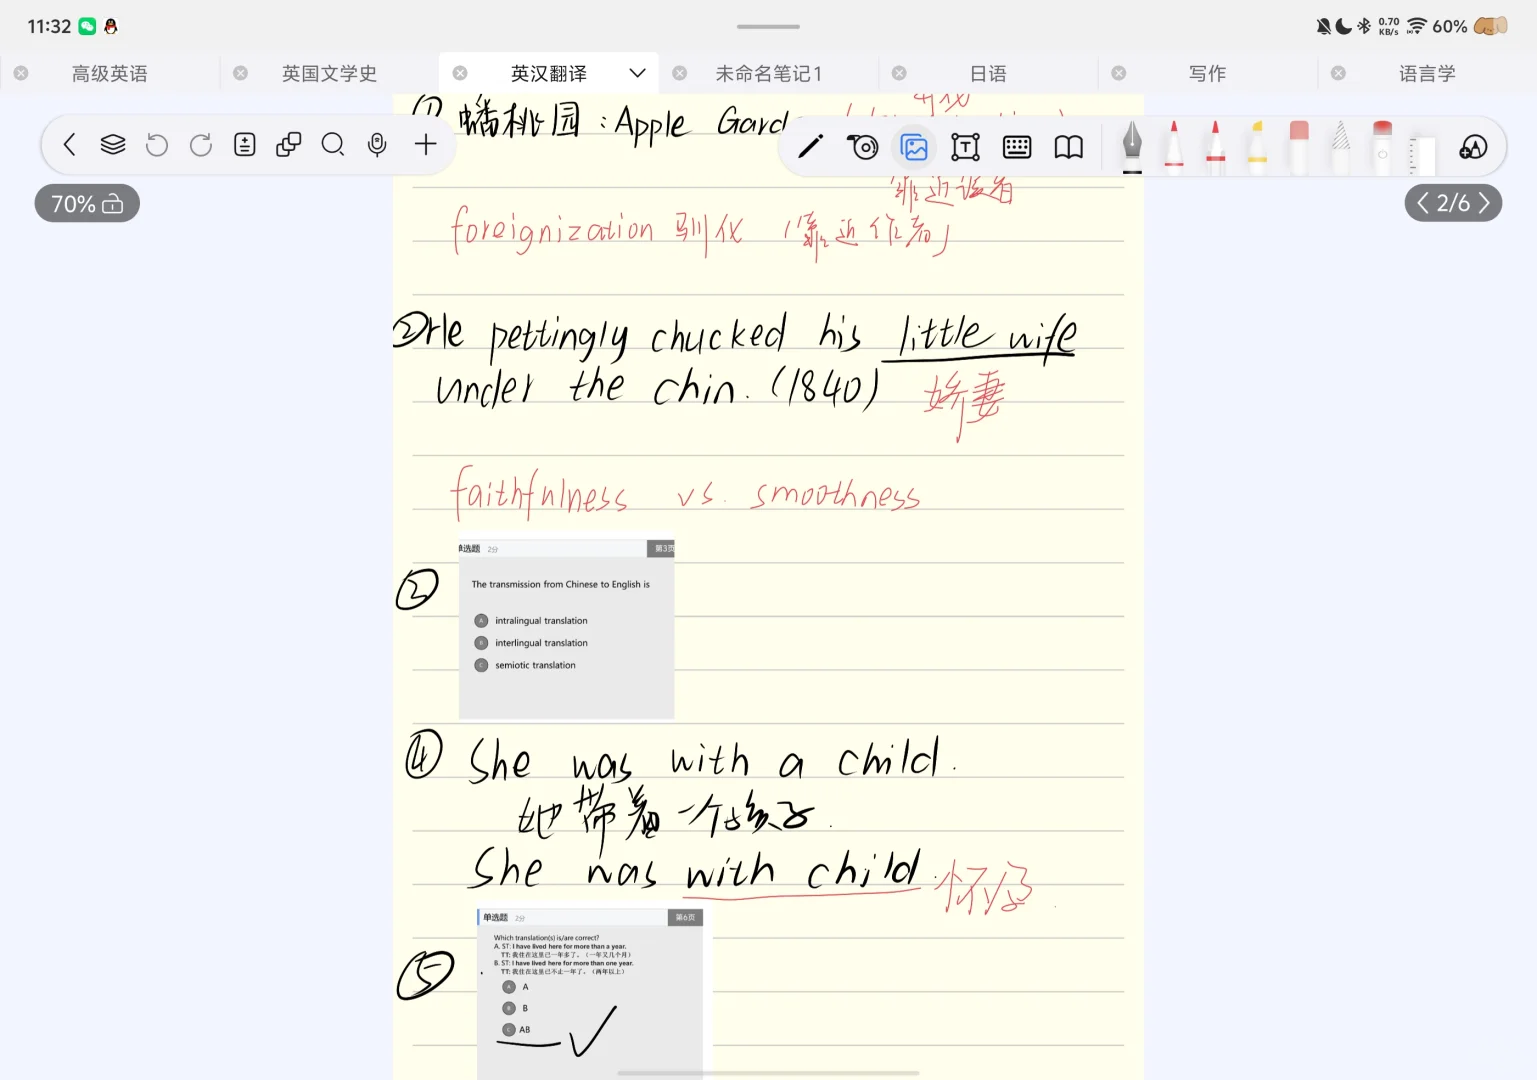 11:32
0.70 KB/s
60%
高级英语
英国文学史
英汉翻译
未命名笔记1
日语
写作
语言学
① 蟠桃园：Apple Gard
70%
2/6
靠近读者
foreignization 驯化 （靠近作者）
②He pettingly chucked his little wife
under the chin. (1840) 娇妻
faithfulness vs. smoothness
单选题 2分 第3页
②
The transmission from Chinese to English is
A intralingual translation
B interlingual translation
C semiotic translation
④ She was with a child.
她带着一个孩子.
She was with child. 怀孕
单选题 2分 第6页
⑤
Which translation(s) is/are correct?
A. ST: I have lived here for more than a year.
TT: 我住在这里已一年多了。（一年又几个月）
B. ST: I have lived here for more than one year.
TT: 我住在这里已不止一年了。（两年以上）
A A
B B
C AB